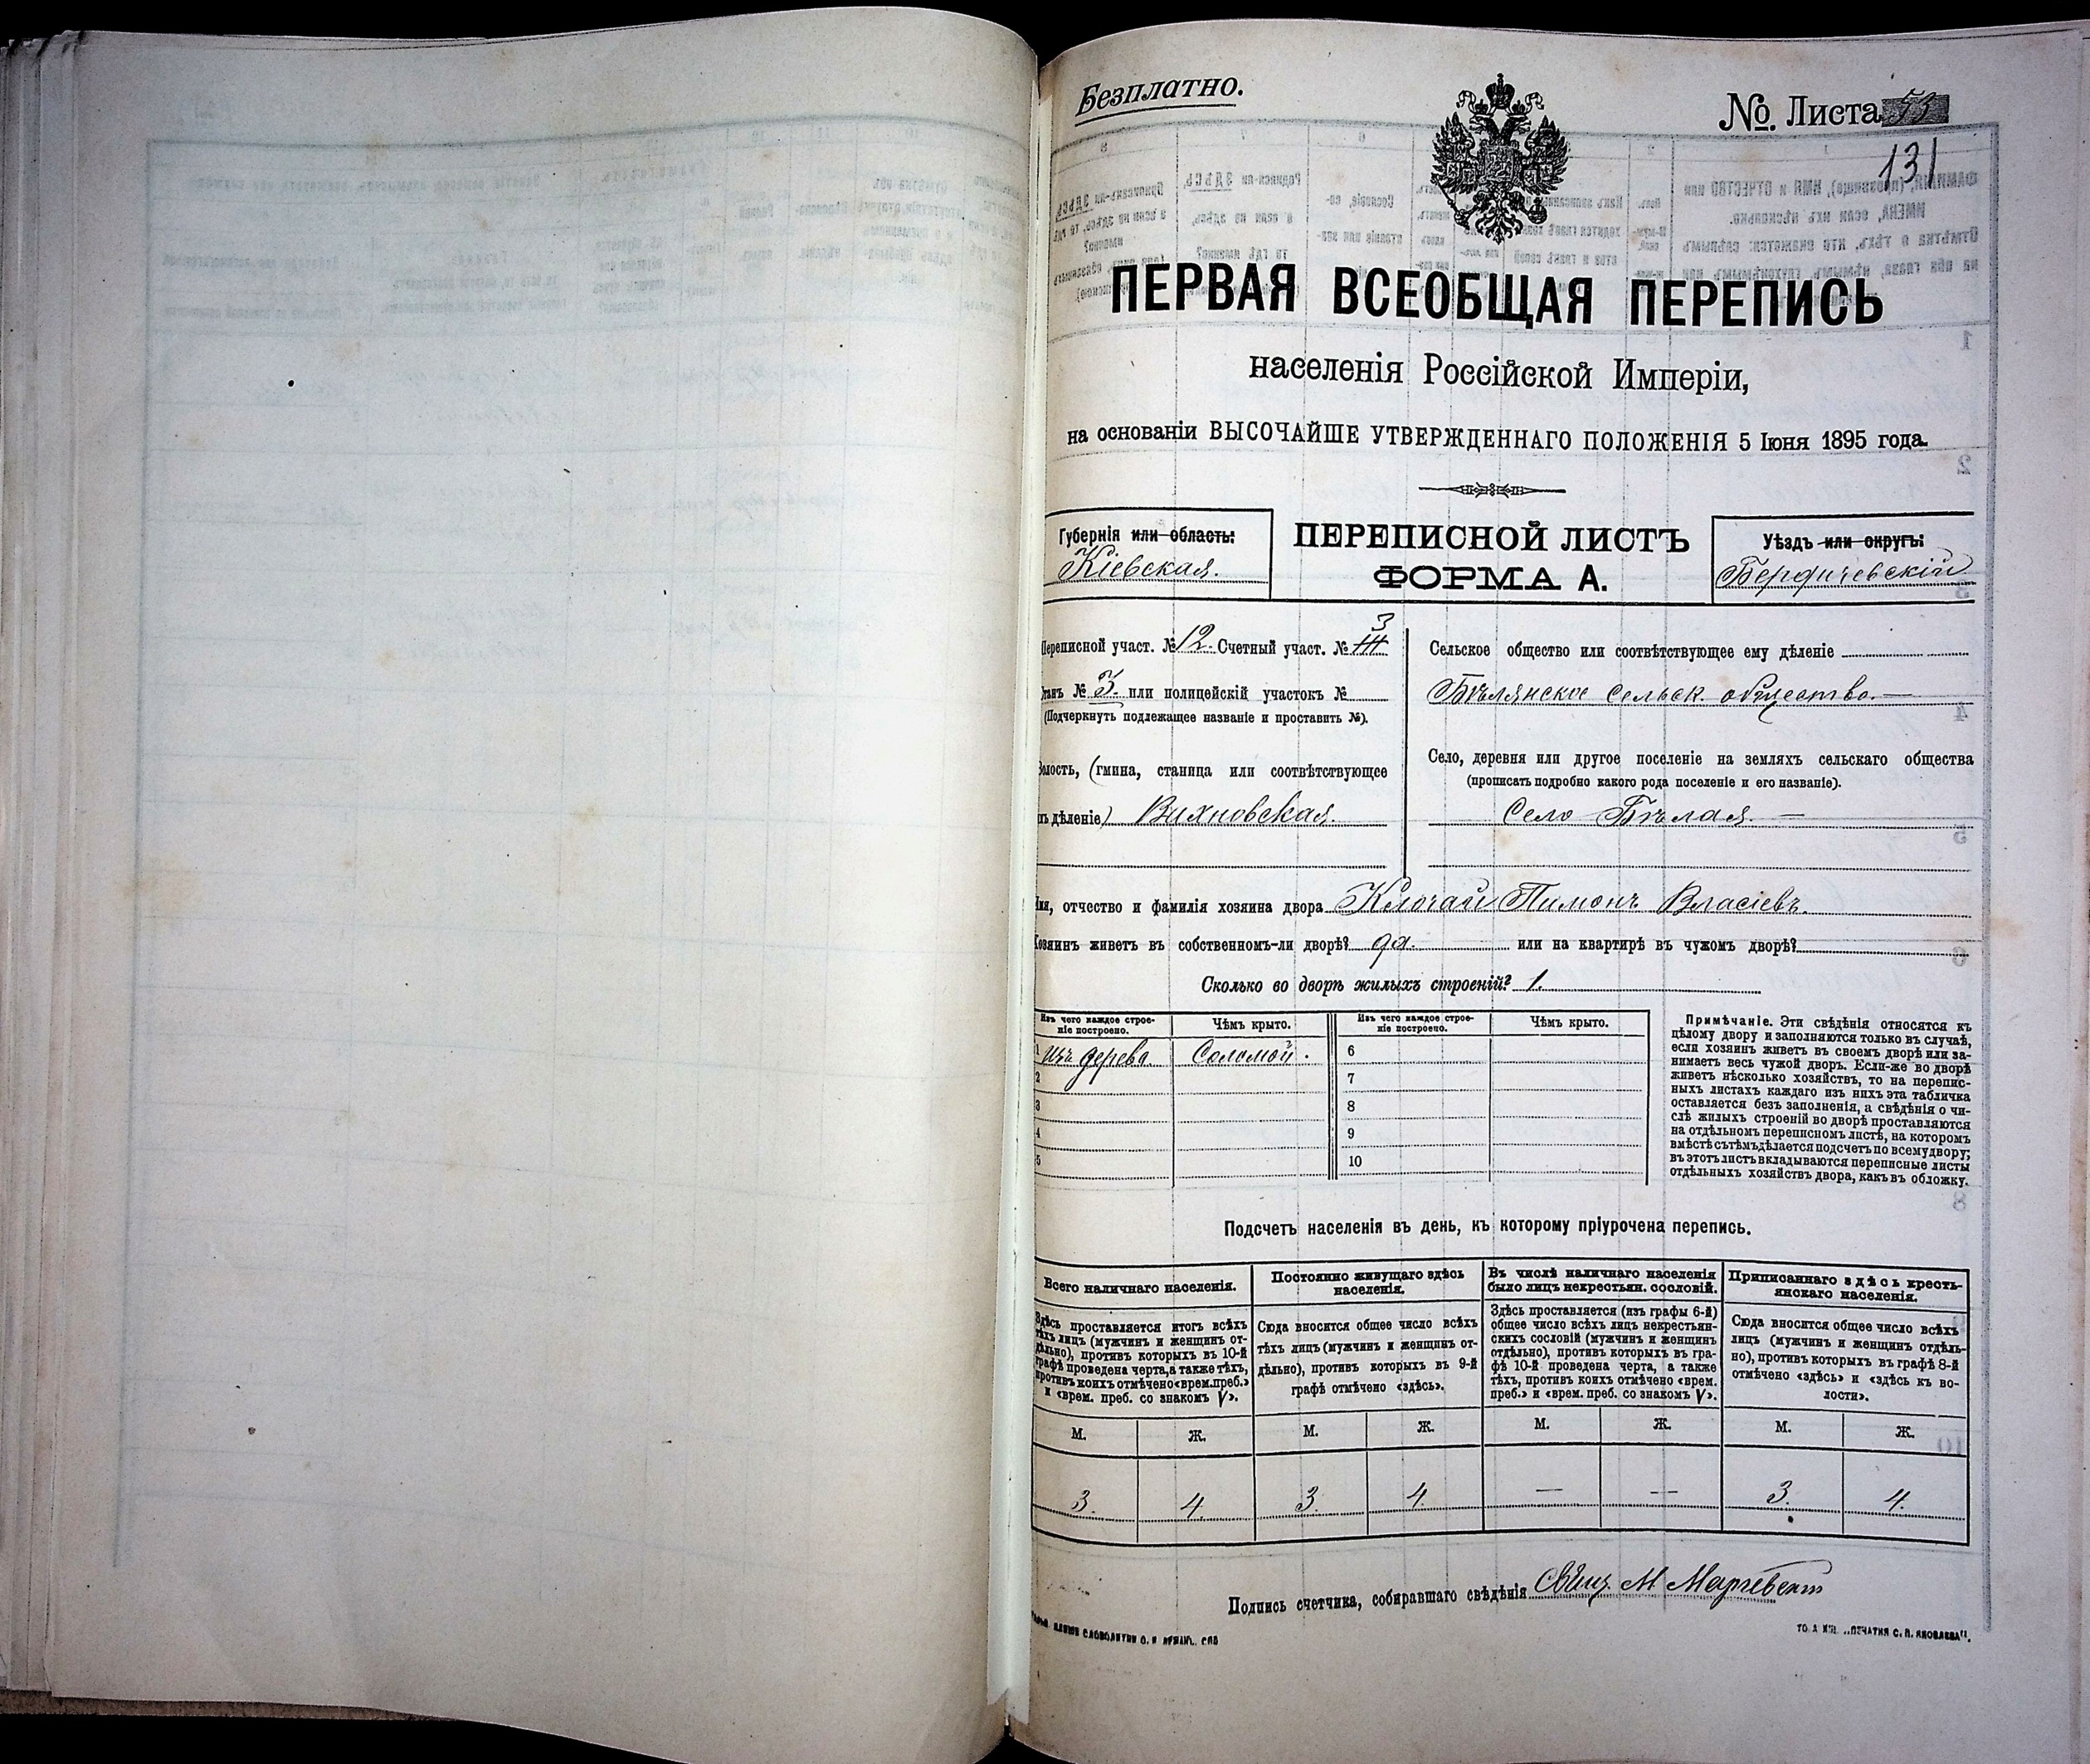 Безплатно.
№ Листа 53
131
ПЕРВАЯ ВСЕОБЩАЯ ПЕРЕПИСЬ
населенія Россійской Имперіи,
на основаніи ВЫСОЧАЙШЕ УТВЕРЖДЕННАГО ПОЛОЖЕНІЯ 5 Іюня 1895 года.
Губернія или область:
Кіевская.
ПЕРЕПИСНОЙ ЛИСТЪ
ФОРМА А.
Уѣздъ или округъ:
Бердичевскій
Переписной участ. № 12. Счетный участ. № III 3
Станъ № 3. или полицейскій участокъ №
(Подчеркнуть подлежащее названіе и проставить №).
Волость, (гмина, станица или соотвѣтствующее
имъ дѣленіе) Вахновская.
Сельское общество или соотвѣтствующее ему дѣленіе
Бѣлянское сельск. общество. —
Село, деревня или другое поселеніе на земляхъ сельскаго общества
(прописать подробно какого рода поселеніе и его названіе).
Село Бѣлая. —
Имя, отчество и фамилія хозяина двора Ключай Пимонъ Власіевъ.
Хозяинъ живетъ въ собственномъ-ли дворѣ? да. или на квартирѣ въ чужомъ дворѣ?
Сколько во дворѣ жилыхъ строеній? 1.
Изъ чего каждое строе-
ніе построено.
Чѣмъ крыто.
Изъ чего каждое строе-
ніе построено.
Чѣмъ крыто.
1 Изъ дерева. Соломой. 6
2 7
3 8
4 9
5 10
Примѣчаніе. Эти свѣдѣнія относятся къ
цѣлому двору и заполняются только въ случаѣ,
если хозяинъ живетъ въ своемъ дворѣ или за-
нимаетъ весь чужой дворъ. Если-же во дворѣ
живетъ нѣсколько хозяйствъ, то на перепис-
ныхъ листахъ каждаго изъ нихъ эта табличка
оставляется безъ заполненія, а свѣдѣнія о чи-
слѣ жилыхъ строеній во дворѣ проставляются
на отдѣльномъ переписномъ листѣ, на которомъ
вмѣстѣ съ тѣмъ дѣлается подсчетъ по всему двору;
въ этотъ листъ вкладываются переписные листы
отдѣльныхъ хозяйствъ двора, какъ въ обложку.
Подсчетъ населенія въ день, къ которому пріурочена перепись.
Всего наличнаго населенія.
Здѣсь проставляется итогъ всѣхъ
тѣхъ лицъ (мужчинъ и женщинъ от-
дѣльно), противъ которыхъ въ 10-й
графѣ проведена черта, а также тѣхъ,
противъ коихъ отмѣчено «врем. преб.»
и «врем. преб. со знакомъ V».
Постоянно живущаго здѣсь
населенія.
Сюда вносится общее число всѣхъ
тѣхъ лицъ (мужчинъ и женщинъ от-
дѣльно), противъ которыхъ въ 9-й
графѣ отмѣчено «здѣсь».
Въ числѣ наличнаго населенія
было лицъ некрестьян. сословій.
Здѣсь проставляется (изъ графы 6-й)
общее число всѣхъ лицъ некрестьян-
скихъ сословій (мужчинъ и женщинъ
отдѣльно), противъ которыхъ въ гра-
фѣ 10-й проведена черта, а также
тѣхъ, противъ коихъ отмѣчено «врем.
преб.» и «врем. преб. со знакомъ V».
Приписаннаго здѣсь кресть-
янскаго населенія.
Сюда вносится общее число всѣхъ
лицъ (мужчинъ и женщинъ отдѣль-
но), противъ которыхъ въ графѣ 8-й
отмѣчено «здѣсь» и «здѣсь къ во-
лости».
М. Ж. М. Ж. М. Ж. М. Ж.
3. 4. 3. 4. — — 3. 4.
Подпись счетчика, собиравшаго свѣдѣнія Свящ. М